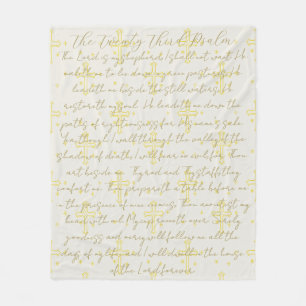 The Twenty Third Psalm
The Lord is my shepherd I shall not want He
maketh me to lie down in green pastures He
leadeth me beside the still waters He
restoreth my soul He leadeth me down the
paths of righteousness for His name's sake
Yea, though I walk through the valley of the
shadow of death, I will fear no evil for Thou
art beside me Thy rod and Thy staff they
comfort me Thou preparest a table before me
in the presence of mine enemies Thou annointest my
head with oil My cup runneth over surely
goodness and mercy will follow me all the
days of my life and I will dwell in the house
of the Lord forever